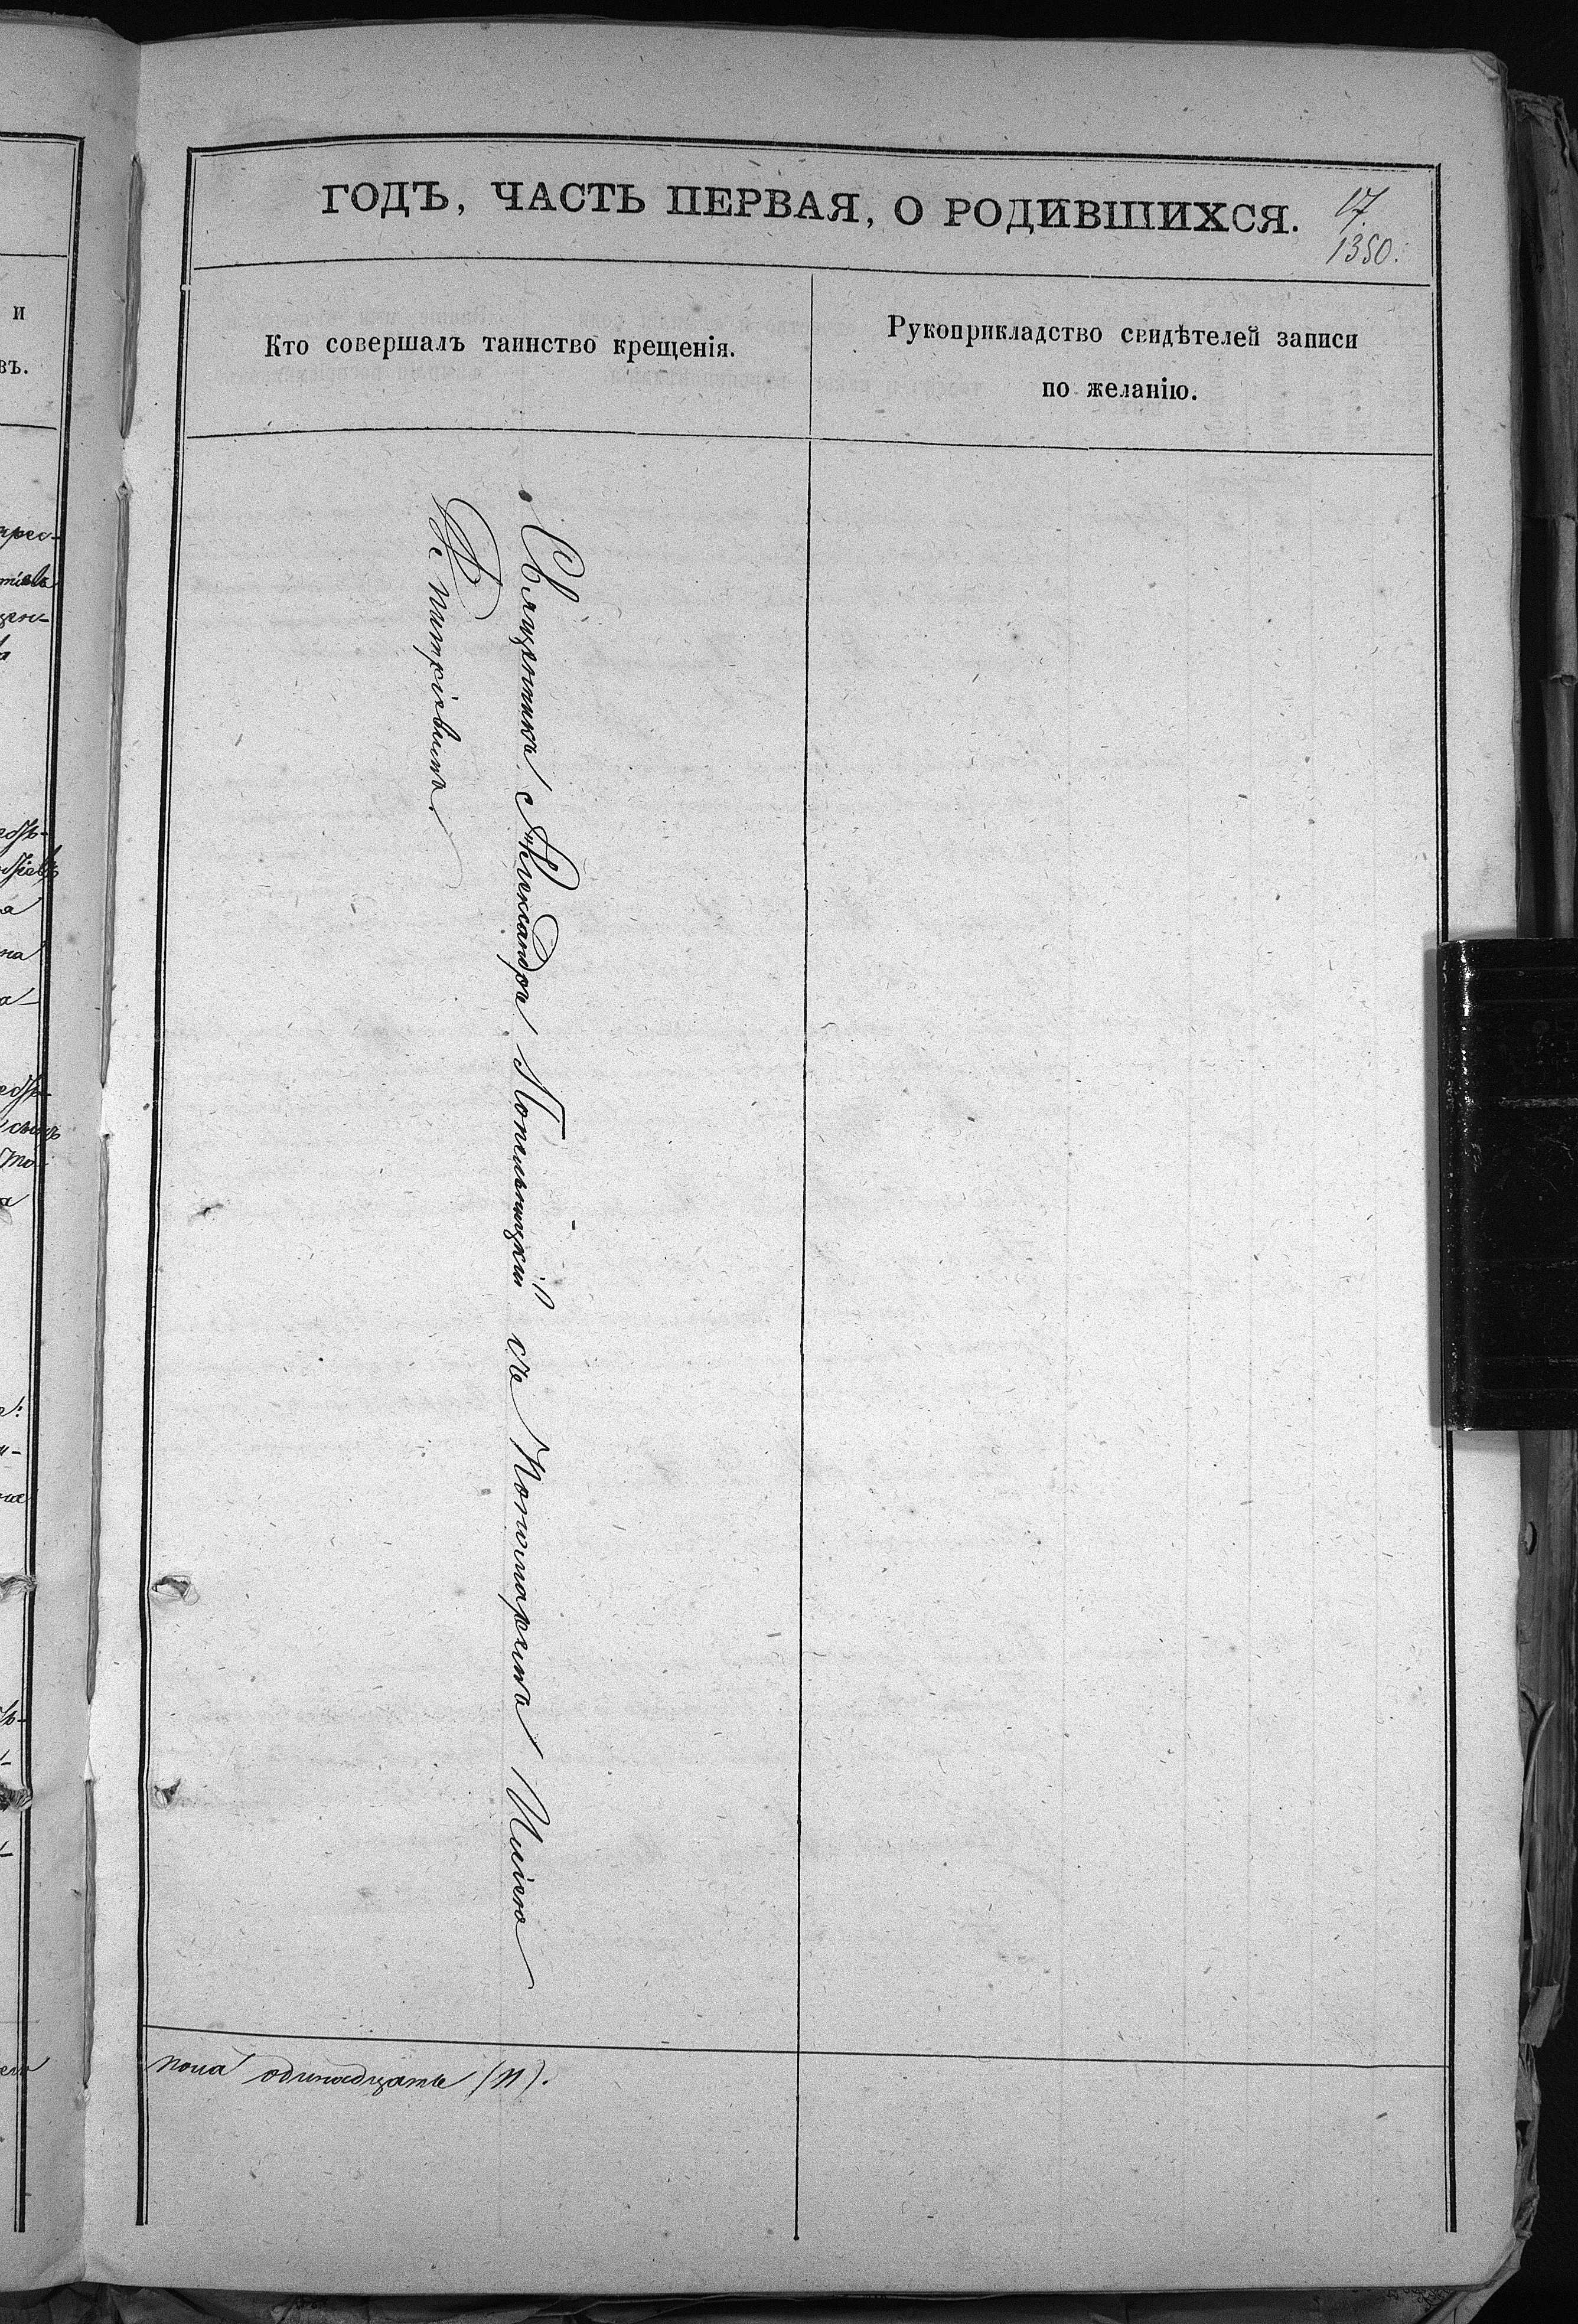 ГОДЪ, ЧАСТЬ ПЕРВАЯ, О РОДИВШИХСЯ.
17.
1350.
и
въ.
Кто совершалъ таинство крещенія.
Рукоприкладство свидѣтелей записи
по желанію.
Священникъ Александръ Попельницкій съ Пономаремъ Иліею
Дмитріевымъ.
пола одинадцать (11).